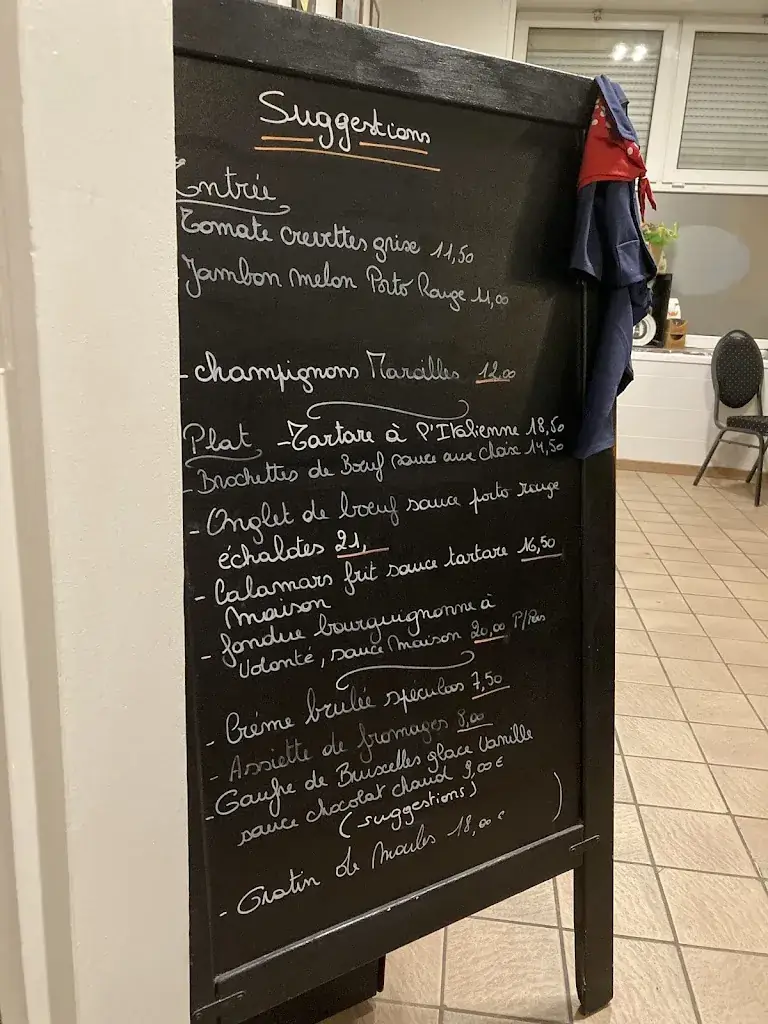 Suggestions
Entrée
Tomate crevettes grise 11,50
Jambon melon Porto Rouge 11,00
- champignons Farcilles 12,00
Plat - Tartare à l'Italienne 18,50
- Brochettes de Bœuf sauce aux choix 14,50
- Onglet de boeuf sauce porto rouge
échalotes 21,
- Calamars frit sauce tartare 16,50
Maison
- fondue bourguignonne à
Volonté, sauce Maison 20,00 P/Pers
- Créme brulée spéculoos 7,50
- Assiette de fromages 8,00
- Gaufre de Bruxelles glace Vanille
sauce chocolat chaud 9,00€
(suggestions)
- Gratin de Moules 18,00€